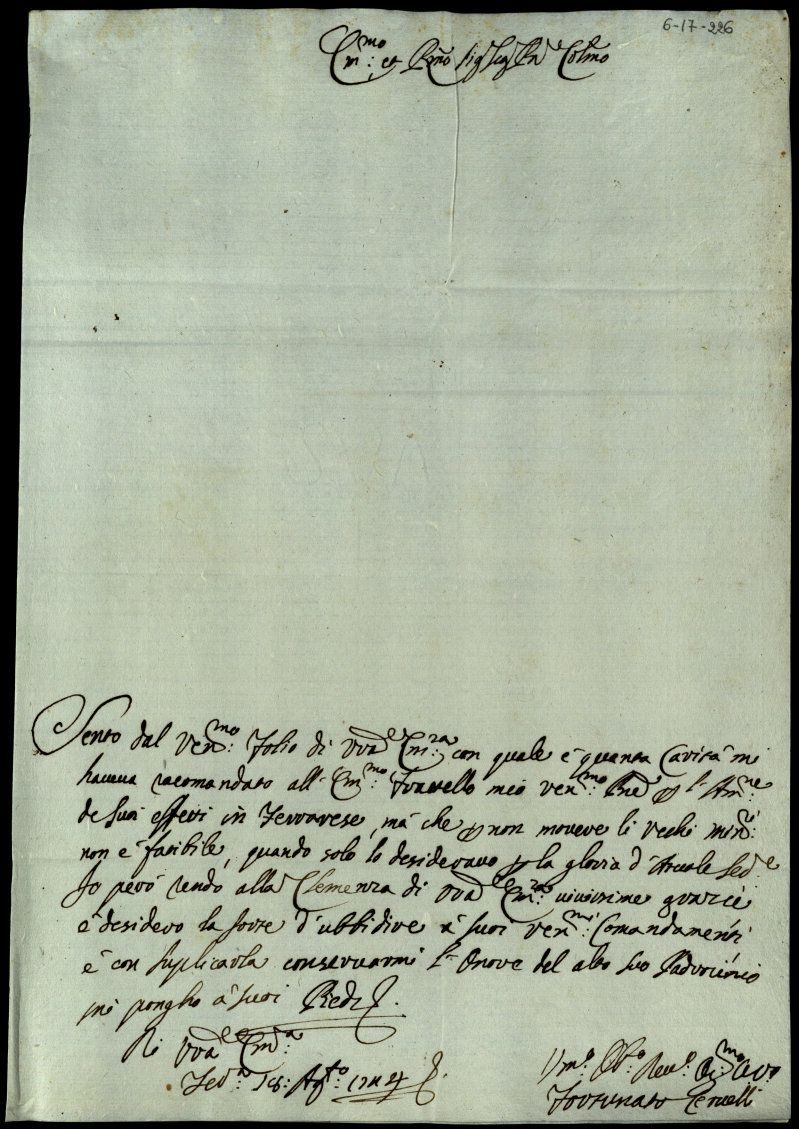 6-17-226
Em:mo et Rmo Sig Sig Pne Colmo
Sento dal ven:mo folio di Vra Em:za con quale è quanta Carità mi
haveva racomandato all' Em:mo Fratello mio ven:mo Pne p l' Am:ne
de suoi effetti in Ferrarese, mà che p non movere li vechi min:ri
non è facibile, quando solo lo desideravo p la gloria d'
Io però rendo alla Clemenza di Vra Em:za vivissime grazie
è desidero la sorte d'ubbidire à suoi ven:mi Comandamenti
è con suplicarla conservarmi l' Onore del alto suo Padrocinio
mi pongho à suoi Piedi.
Di Vra Em:za
Fer:a 18: Ag:to
Um:o Ob:o Ser:o
Fortunato Cervelli